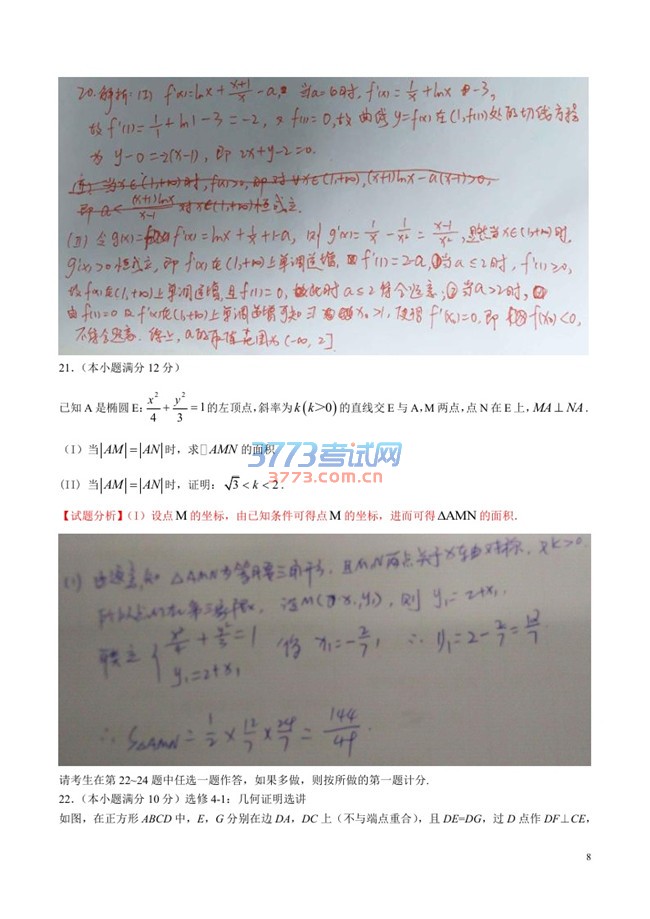 20.解析:(I) f'(x)=lnx+(x+1)/x-a, 当a=6时, f'(x)=1/x+lnx-3,
故f'(1)=1/1+ln1-3=-2, 又f(1)=0,故曲线y=f(x)在(1,f(1))处的切线方程
为 y-0=-2(x-1), 即 2x+y-2=0.
当x∈(1,+∞)时, f(x)>0, 即对∀x∈(1,+∞),(x+1)lnx-a(x-1)>0,
即a<(x+1)lnx/(x-1) 对x∈(1,+∞)恒成立.
(II) 令g(x)=f'(x)=lnx+1/x+1-a, 则g'(x)=1/x-1/x²=(x-1)/x², 显然当x∈(1,+∞)时,
g'(x)>0恒成立, 即f'(x)在(1,+∞)上单调递增, f'(1)=2-a, ①当a≤2时, f'(1)≥0,
故f(x)在(1,+∞)上单调递增,且f(1)=0, 故此时a≤2符合题意; ②当a>2时,
由f(1)=0及f'(x)在(1,+∞)上单调递增可知∃x₀>1, 使得f'(x₀)=0, 即f(x₀)<0,
不符合题意. 综上, a的取值范围为(-∞,2]
21.(本小题满分 12 分)
已知 A 是椭圆 E: x²/4+y²/3=1的左顶点,斜率为k(k>0)的直线交 E 与 A,M 两点,点 N 在 E 上,MA⊥NA.
(I)当|AM|=|AN|时,求□AMN的面积
(II) 当|AM|=|AN|时,证明:√3<k<2.
3773考试网
3773.com.cn
【试题分析】(I)设点M的坐标,由已知条件可得点M的坐标,进而可得ΔAMN的面积.
(1) 由题意知 △AMN为等腰三角形, 且M,N两点关于x轴对称, 又k>0.
设M(x₁,y₁), 则 y₁=2+x₁
联立{x²/4+y²/3=1 得 x₁=-2/7, ∴ y₁=2-2/7=12/7
y₁=2+x₁
∴ S△AMN=1/2×12/7×24/7=144/49.
请考生在第 22~24 题中任选一题作答,如果多做,则按所做的第一题计分.
22.(本小题满分 10 分)选修 4-1:几何证明选讲
如图,在正方形 ABCD 中,E,G 分别在边 DA,DC 上(不与端点重合),且 DE=DG,过 D 点作 DF⊥CE,
8